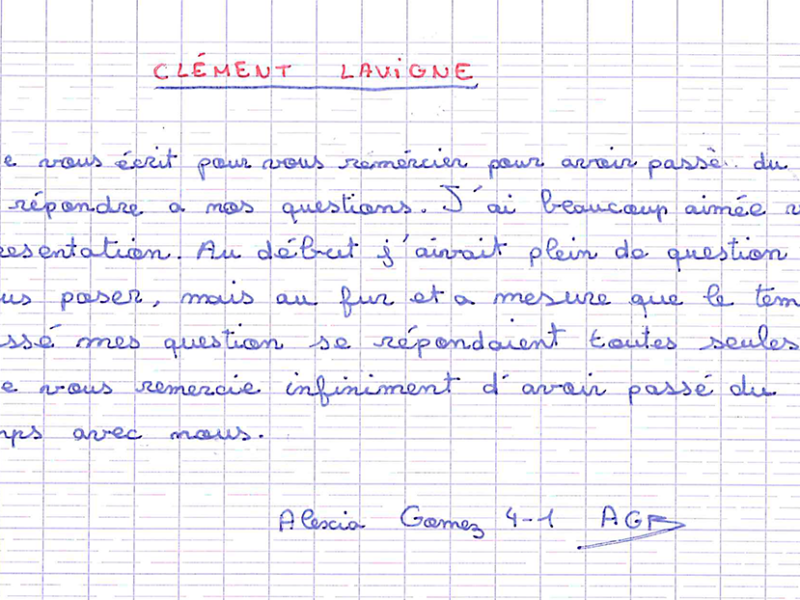 CLÉMENT LAViGNE
e vous écrit pour vous remércier pour avoir passè.. du
répondre a nos questions. J'ai beaucoup aimée v
resentation. Au début j'aivait plein de question
us poser, mais au fur et a mesure que le tem
ssé mes question se répondaient toutes seules
e vous remercie infiniment d'avoir passé du
mps avec nous.
Alexia Gomez 4-1 AG